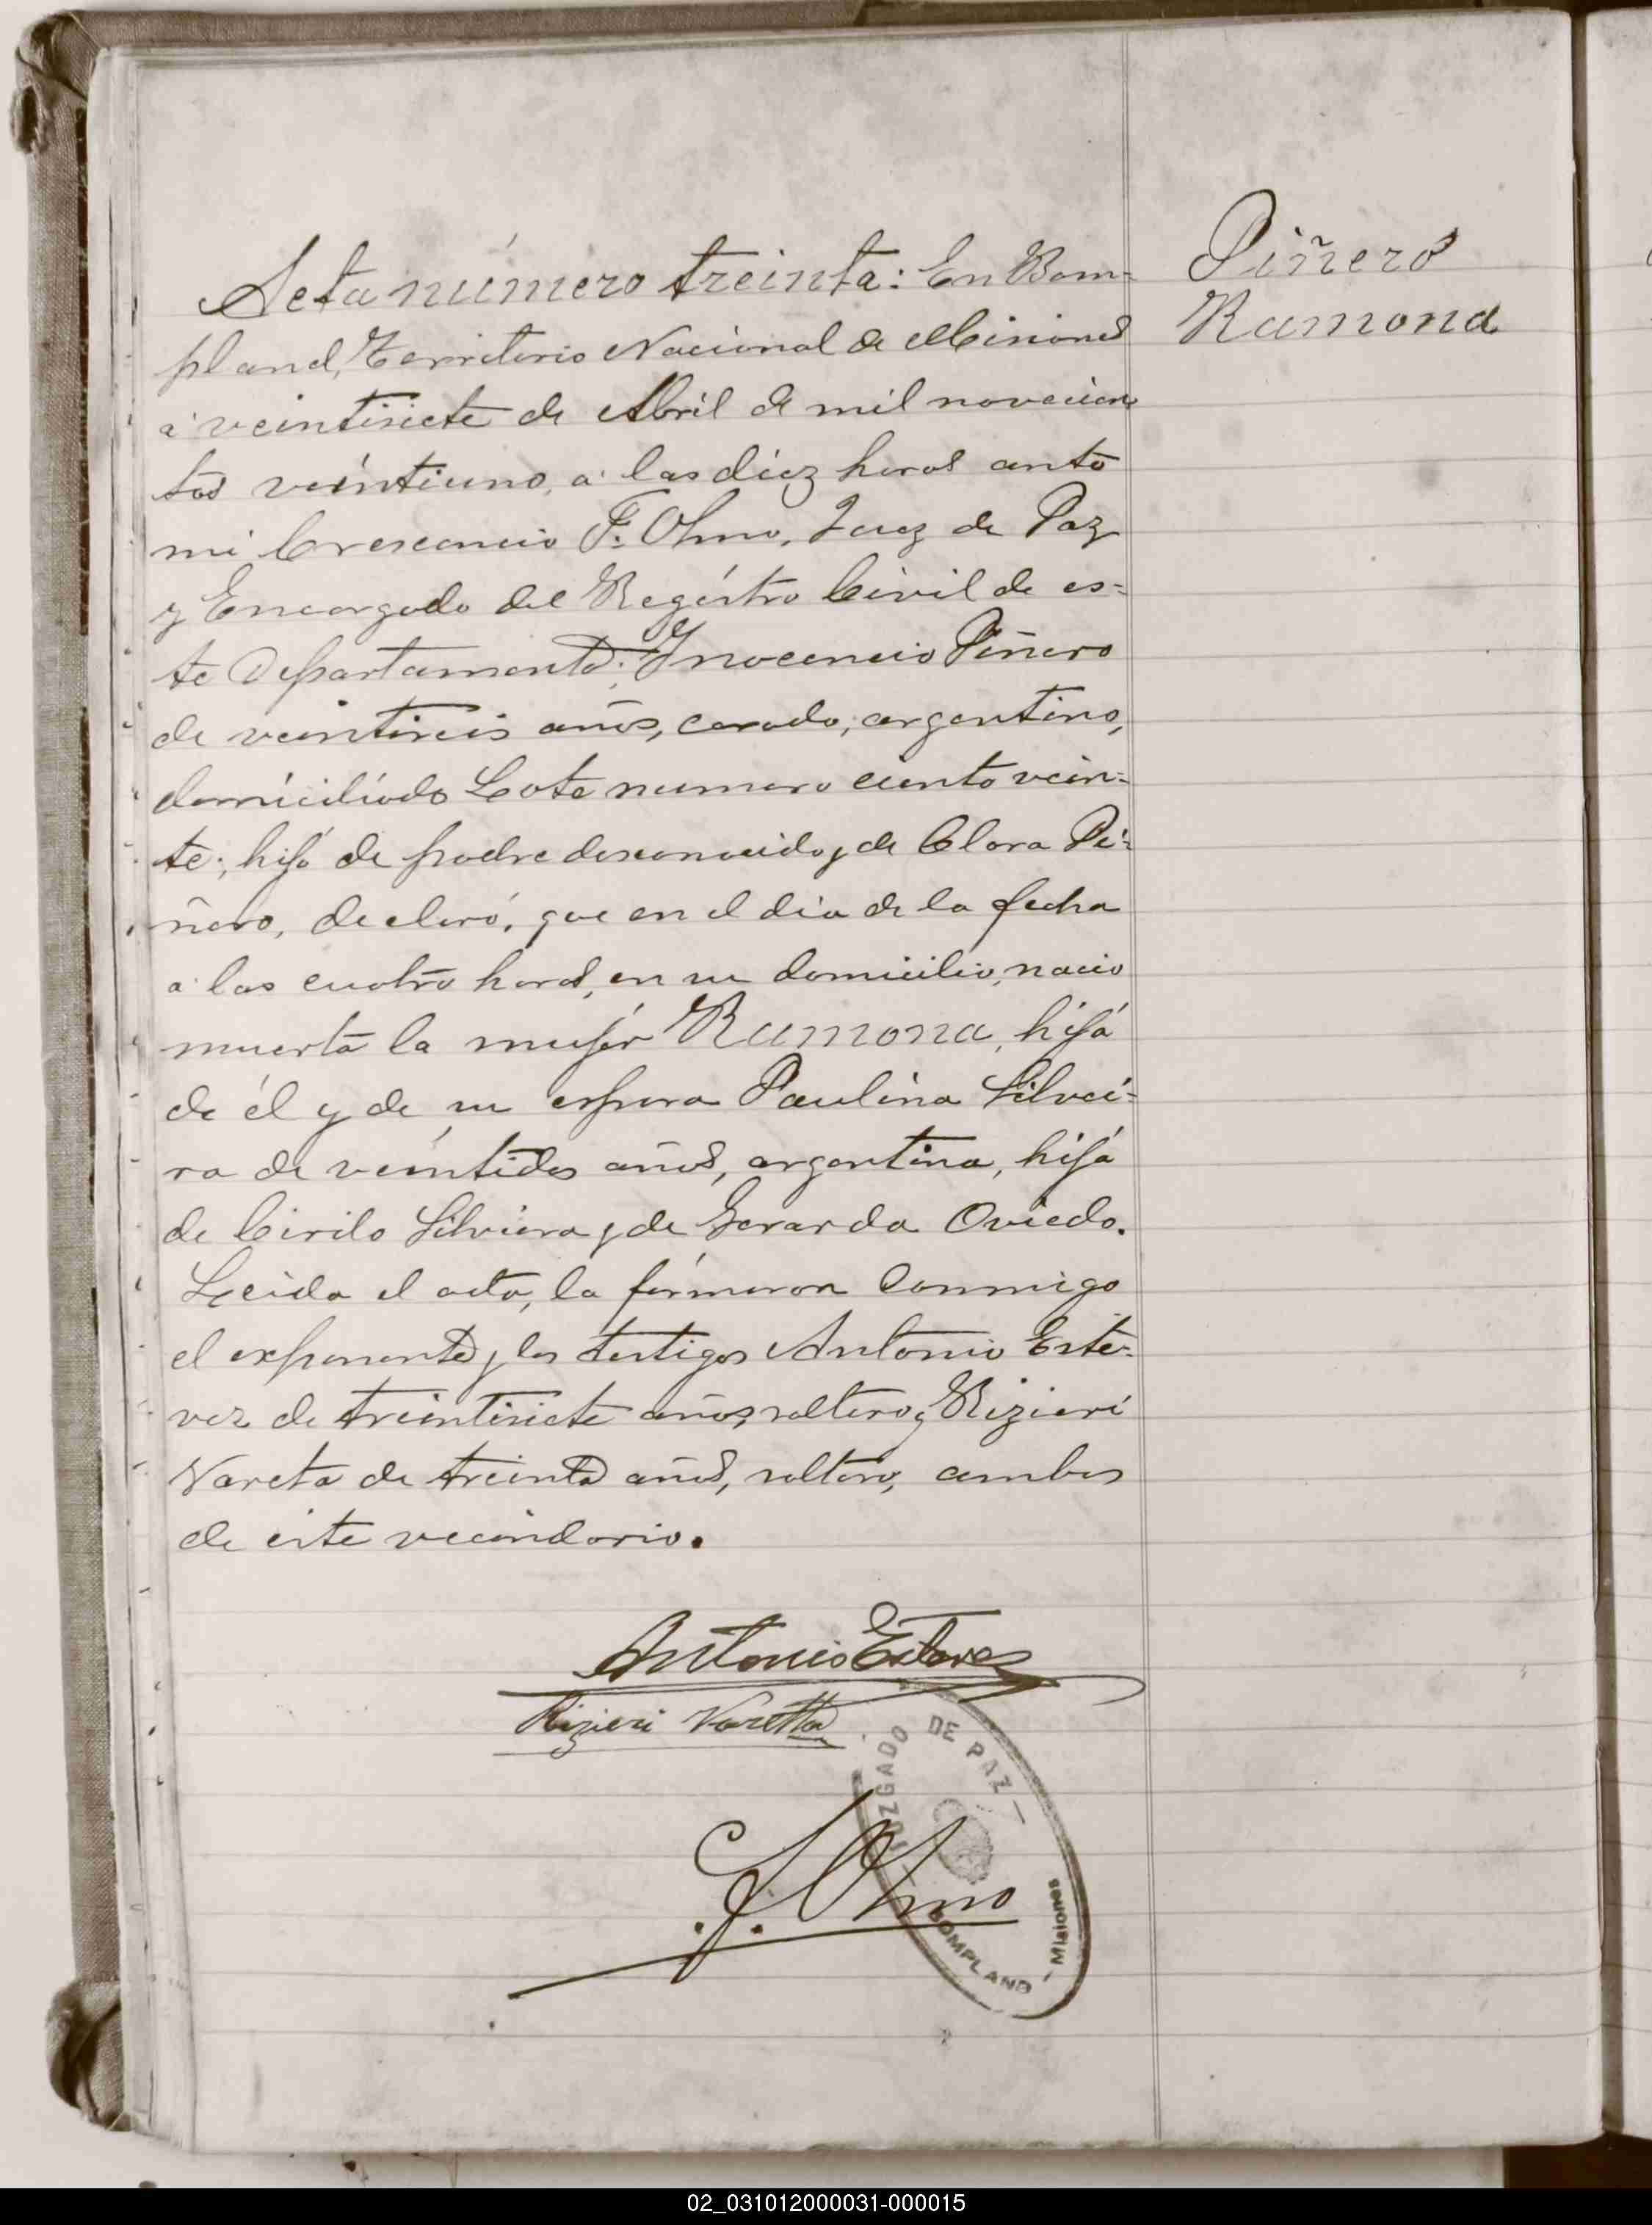 Acta número treinta: En Bom=
pland, Territorio Nacional de Misiones
á veintisiete de Abril de mil novecien
tos veintiuno, á las diez horas ante
mi Crescencio F. Olmo, Juez de Paz
y Encargado del Registro Civil de es=
te Departamento; Inocencio Piñero
de veintiseis años, casado, argentino,
domiciliado Lote numero ciento vein=
te; hijo de padre desconocido y de Clara Pi=
ñero, declaró, que en el dia de la fecha
á las cuatro horas, en su domicilio, nació
muerta la mujer Ramona, hija
de él y de su esposa Paulina Silvei=
ra de veintidos años, argentina, hija
de Cirilo Silviera y de Gerarda Oviedo.
Leida el acta, la firmaron conmigo
el exponente y los testigos Antonio Este=
vez de treintisiete años, soltero y Rizieri
Vareta de treinta años, soltero, ambos
de este vecindario.
Piñero
Ramona
Antonio Estevez
Rizieri Varetta
C. F. Olmo
JUZGADO DE PAZ —
BOMPLAND - Misiones
02_031012000031-000015